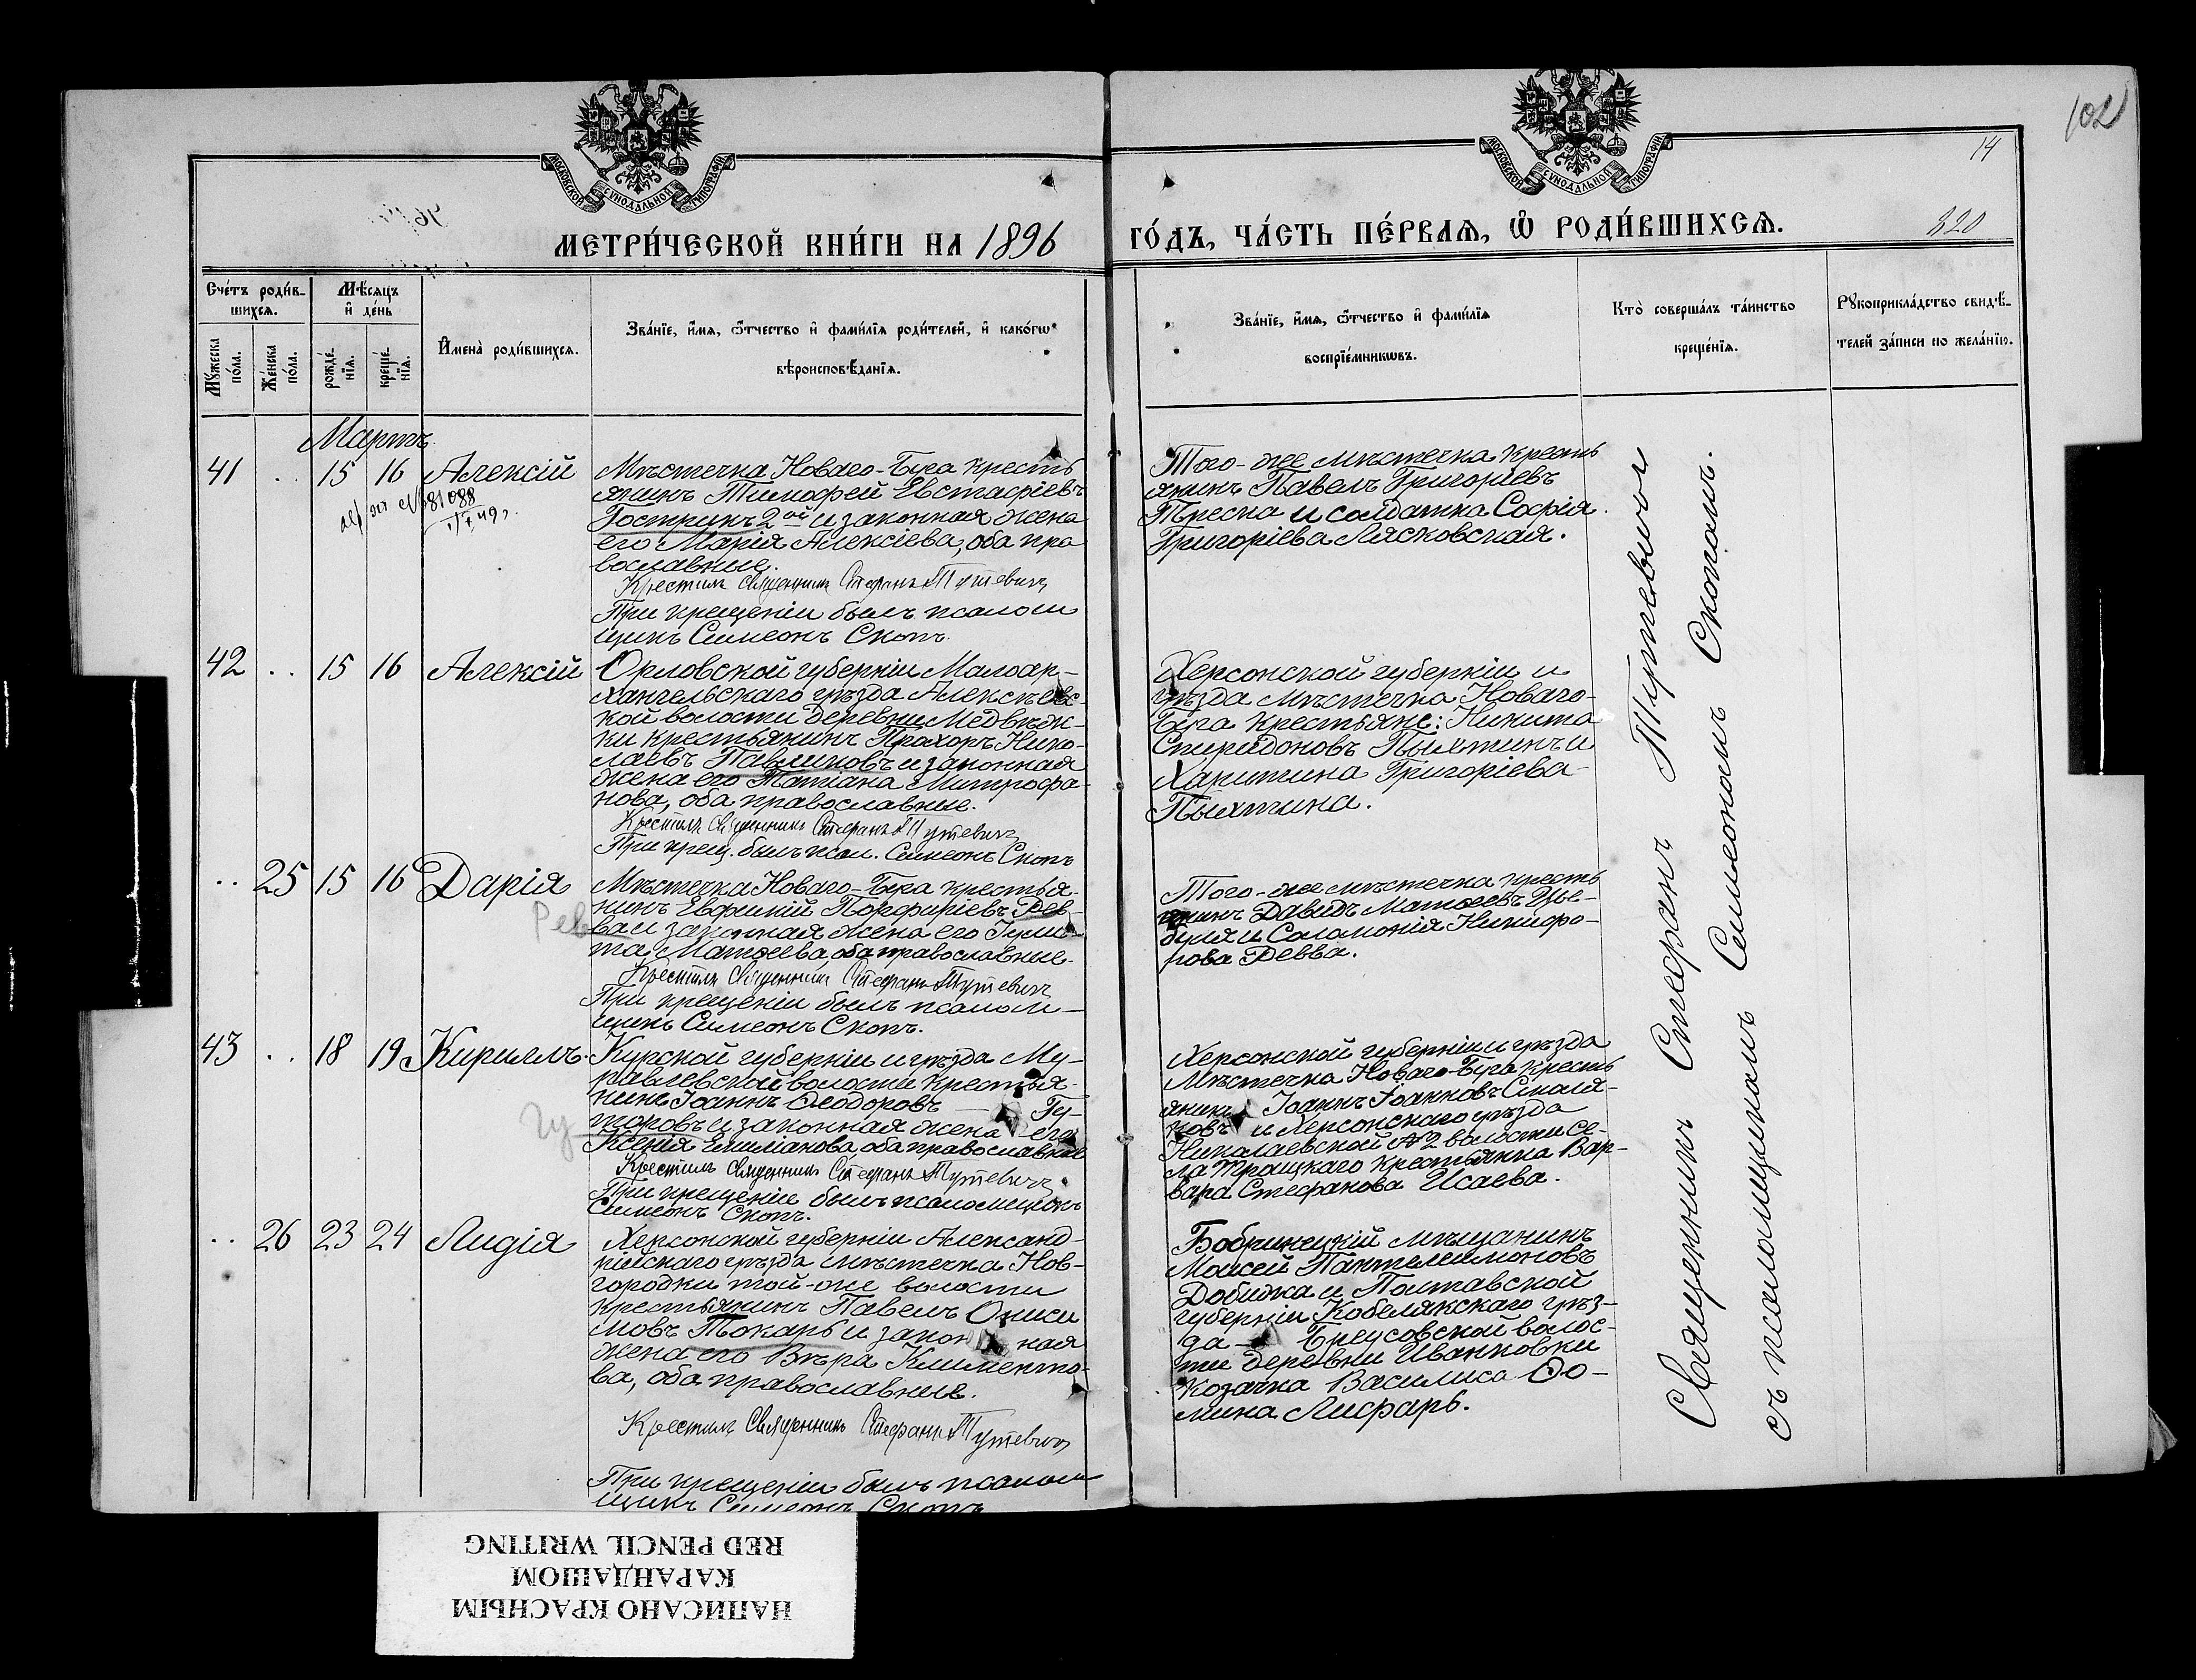 102
14
320
МОСКОВСКОЙ СѴНОДАЛЬНОЙ ТИПОГРАФІИ
МОСКОВСКОЙ СѴНОДАЛЬНОЙ ТИПОГРАФІИ
МЕТРИ́ЧЕСКОЙ КНИ́ГИ НА 1896
ГО́ДЪ, ЧА́СТЬ ПЕ́РВАѦ, Ѿ РОДИ́ВШИХСѦ.
Сче́тъ роди́в-
шихсѧ.
Мѣ́сѧцъ
и҆ де́нь
Мꙋ́жеска по́ла.
Же́нска по́ла.
рожде́-нїѧ.
креще́-нїѧ.
И҆мена̀ роди́вшихсѧ.
Зва́нїе, и҆́мѧ, ѻ҆́тчество и҆ фами́лїѧ роди́телей, и҆ како́гѡ
вѣроисповѣ́данїѧ.
Зва́нїе, и҆́мѧ, ѻ҆́тчество и҆ фами́лїѧ
воспрїе́мникѡвъ.
Кто̀ соверша́лъ та́инство
креще́нїѧ.
Рꙋкоприкла́дство свидѣ́-
телей за́писи по жела́нїю.
Мартъ
41 .. 15 16 Алексій
81088
Мѣстечка Новаго-Буга кресть
янинъ Тимофей Евстафіевъ
Гострикъ 2ой и законная жена
его Марія Алексіева, оба пра
вославные.
Крестилъ Священникъ Стефанъ Тутевичъ
При крещеніи былъ псалом
щикъ Симеонъ Скопъ.
Того-же мѣстечка кресть
янинъ Павелъ Григоріевъ
Тѣрска и солдатка Софія
Григоріева Лясковская.
42 .. 15 16 Алексій
Орловской губерніи Малоар-
хангельскаго уѣзда Алексѣевс-
кой волости деревни Медвѣж-
ки крестьянинъ Прохоръ Нико-
лаевъ Павликовъ и законная
жена его Татіана Митрофа-
нова, оба православные.
Крестилъ Священникъ Стефанъ Тутевичъ
При крещ. былъ псал. Симеонъ Скопъ
Херсонской губерніи и
уѣзда мѣстечка Новаго-
Буга крестьяне: Никита
Спиридоновъ Пыхтинъ и
Харитина Григоріева
Пыхтина.
.. 25 15 16 Дарія
Рев
Мѣстечка Новаго-Буга крестья-
нинъ Евфимій Порфиріевъ Рев-
ва и законная жена его Гули-
та Матѳеева, оба православные.
Крестилъ Священникъ Стефанъ Тутевичъ
При крещеніи былъ псалом-
щикъ Симеонъ Скопъ.
Того-же мѣстечка кресть
янинъ Давидъ Матѳеевъ Цы-
буля и Соломонія Никифо-
рова Ревва.
43 .. 18 19 Кириллъ.
Гу
Курской губерніи и уѣзда Му-
равлевской волости крестья-
нинъ Іоаннъ Ѳеодоровъ — Гу-
торовъ и законная жена его
Ксенія Емиліанова, оба православные
Крестилъ Священникъ Стефанъ Тутевичъ
При крещеніи былъ псаломщикъ
Симеонъ Скопъ.
Херсонской губерніи и уѣзда
Мѣстечка Новаго-Буга кресть
янинъ Іоаннъ Іоанновъ Смаля-
ковъ и Херсонскаго уѣзда
Николаевской № 2 волости се-
ла Троицкаго крестьянка Вар-
вара Стефанова Исаева.
.. 26 23 24 Лидія
Херсонской губерніи Александ-
рійскаго уѣзда мѣстечка Нов-
городки той-же волости
крестьянинъ Павелъ Ониси
мовъ Токарь и закон ная
жена его Вѣра Климентo-
ва, оба православные.
Крестилъ Священникъ Стефанъ Тутевичъ
При крещеніи былъ псалом
щикъ Симеонъ Скопъ
Бобринецкій мѣщанинъ
Моисей Пантелеимоновъ
Добижа и Полтавской
губерніи Кобелякскаго уѣз-
да — Бреусовской волос-
ти деревни Иванковки
козачка Василиса Ѳо-
мина Лифарь.
Священникъ Стефанъ Тутевичъ
съ псаломщикомъ Симеономъ Скопомъ.
НАПИСАНО КРАСНЫМ
КАРАНДАШОМ
RED PENCIL WRITING